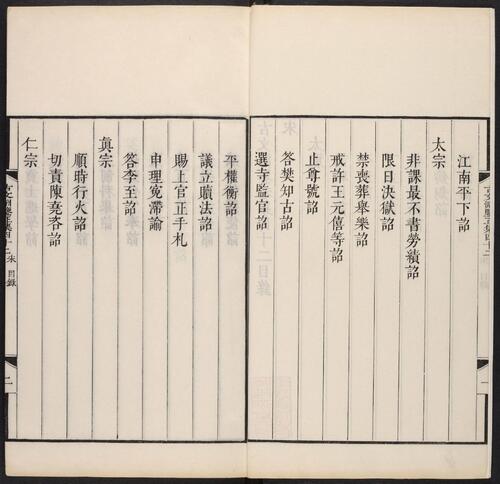 江南平下詔
太宗
非課最不書勞績詔
限日決獄詔
禁喪葬舉樂詔
戒許王元僖等詔
止尊號詔
答樊知古詔
選寺監官詔
平權衡詔
議立贖法詔
賜上官正手札
申理冤滯諭
答李至詔
眞宗
順時行火詔
切責陳堯咨詔
仁宗
目錄
二
一